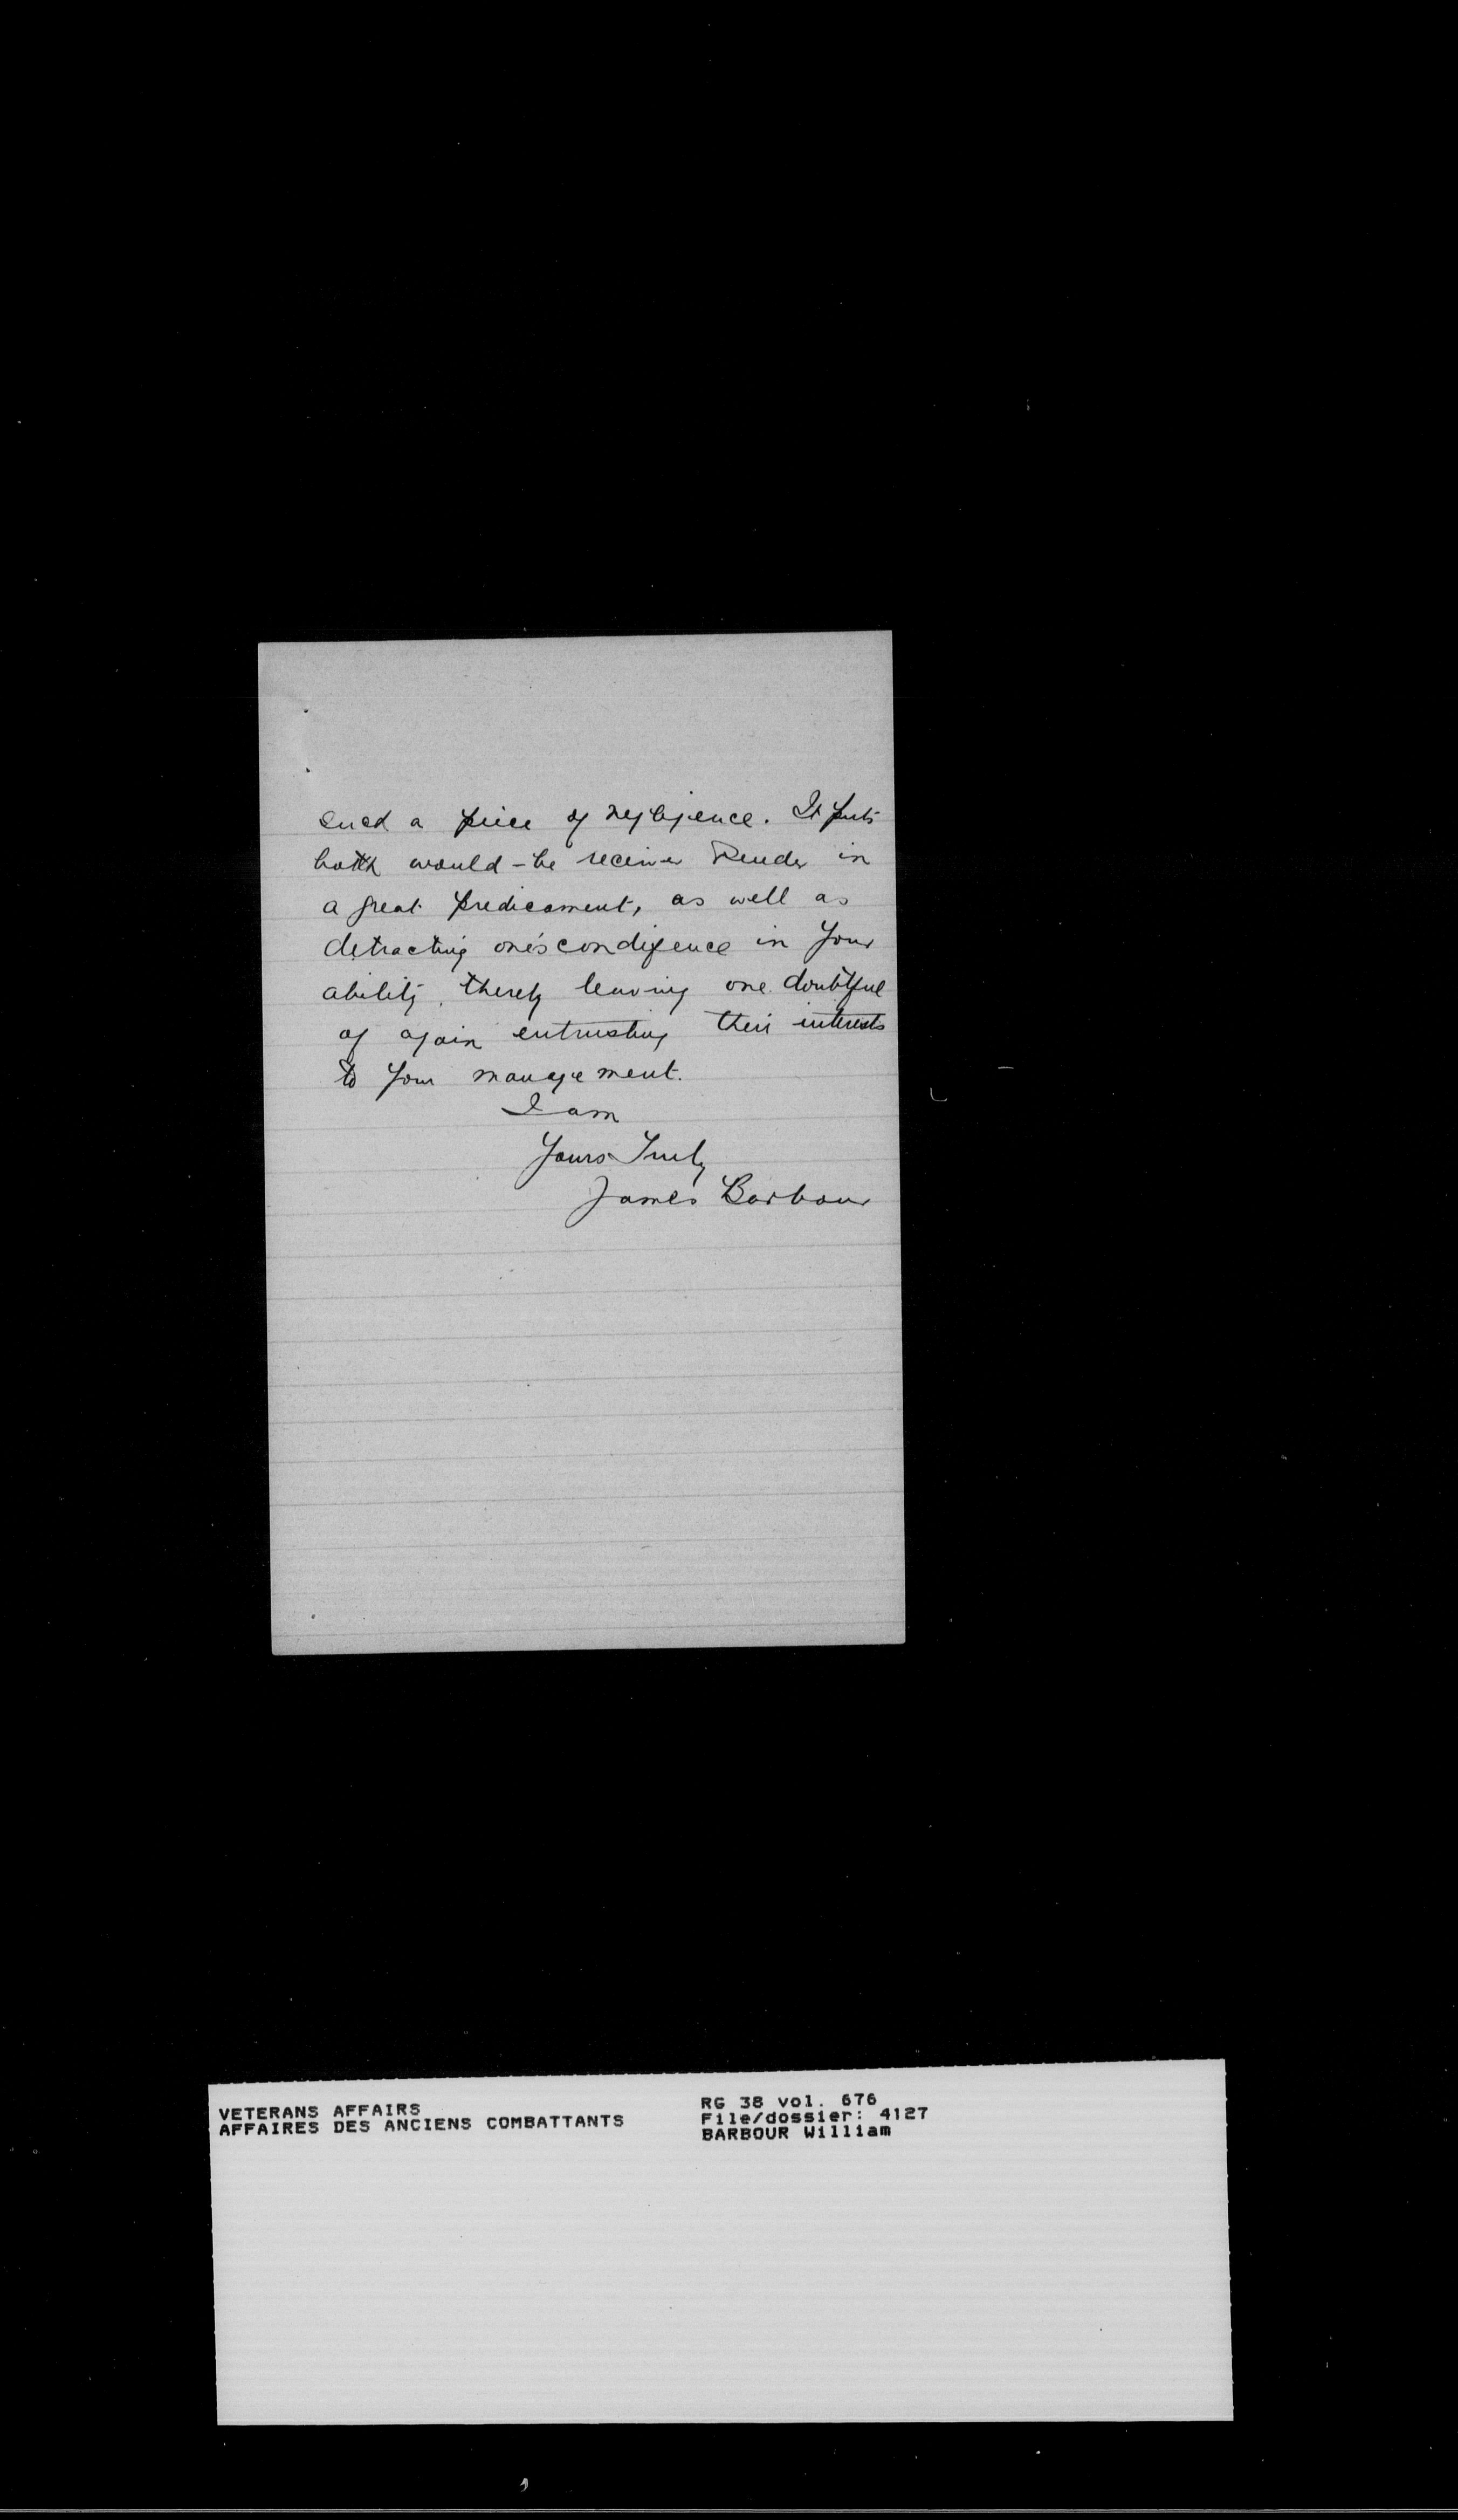 such a piece of negligence. It puts
both would-be receiver Render in
a great predicament, as well as
detracting one's condifence in your
ability, thereby leaving one doubtful
of again entrusting their interests
to your management.
I am
Yours Truly
James Barbour
VETERANS AFFAIRS
AFFAIRES DES ANCIENS COMBATTANTS
RG 38 vol. 676
File/dossier: 4127
BARBOUR William